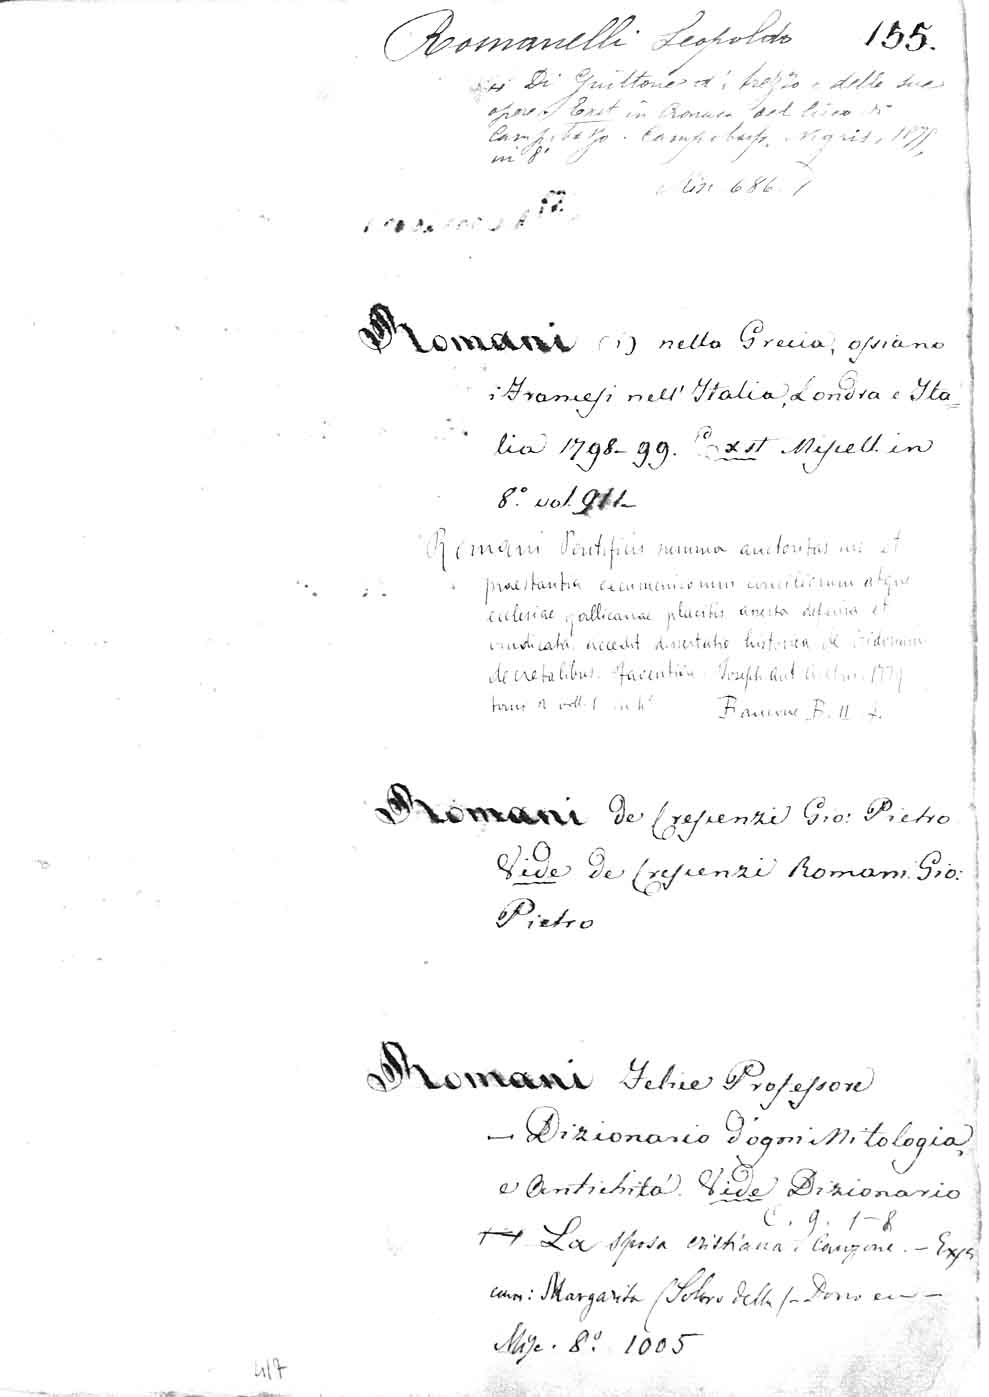 Romanelli Leopoldo 155.
Di Guittone d'Arezzo e delle sue
opere. Exst in Cronaca del liceo di
Campobasso. Campobasso,
in 8°
Misc. 686. 7
Romani (i) nella Grecia, ossiano
i Francesi nell'Italia, Londra e Ita=
lia 1798-99. Exst Miscell. in
8.° vol. 911
Romani Pontificis summa auctoritas et
praestantia oecumenicorum conciliorum atque
ecclesiae gallicanae placitis asserta defensa et
vindicata: accedit dissertatio historica de
decretalibus. Faventiae. Joseph Ant. 1779
in 4°
Romani de Crescenzi Gio: Pietro
Vide de Crescenzi Romani Gio:
Pietro
Romani Felice Professore
— Dizionario d'ogni Mitologia,
e Antichità. Vide Dizionario
C. 9. 1-8
La sposa cristiana: Canzone. —
Margarita
Misc. 8.° 1005
417